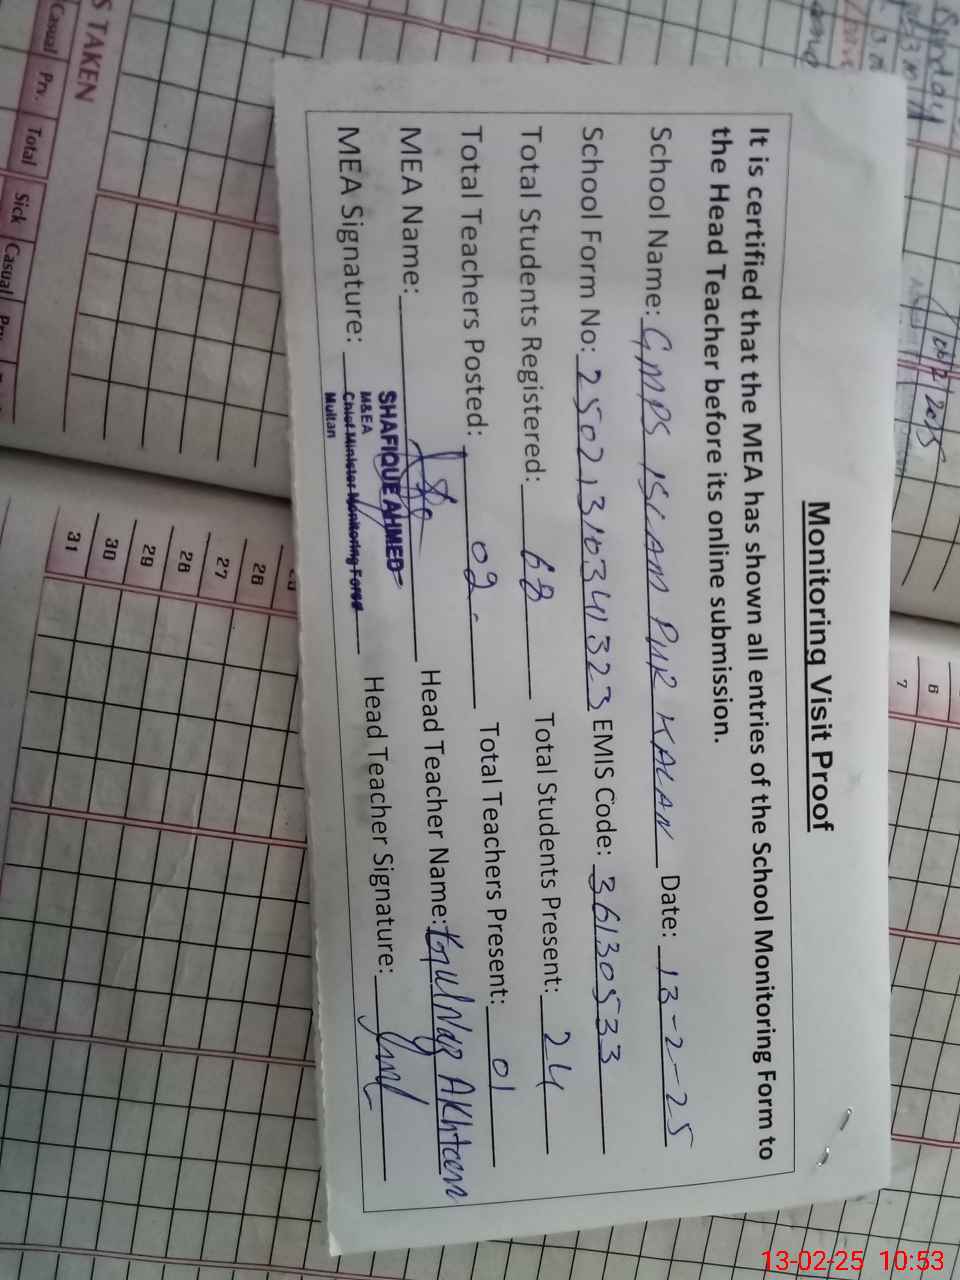 Monitoring Visit Proof
It is certified that the MEA has shown all entries of the School Monitoring Form to
the Head Teacher before its online submission.
School Name: GMPS ISLAM PUR KALAN Date: 13-2-25
School Form No: 25021310341323 EMIS Code: 36130533
Total Students Registered: 68 Total Students Present: 24
Total Teachers Posted: 02 Total Teachers Present: 01
MEA Name: Head Teacher Name: Akhteer
SHAFIQUE AHMED
M&EA
Chief Minister Monitoring Force
Multan
MEA Signature: Head Teacher Signature:
S TAKEN
Casual Prv. Total Sick Casual
Sunday
6
7
26
27
28
29
30
31
13-02-25 10:53